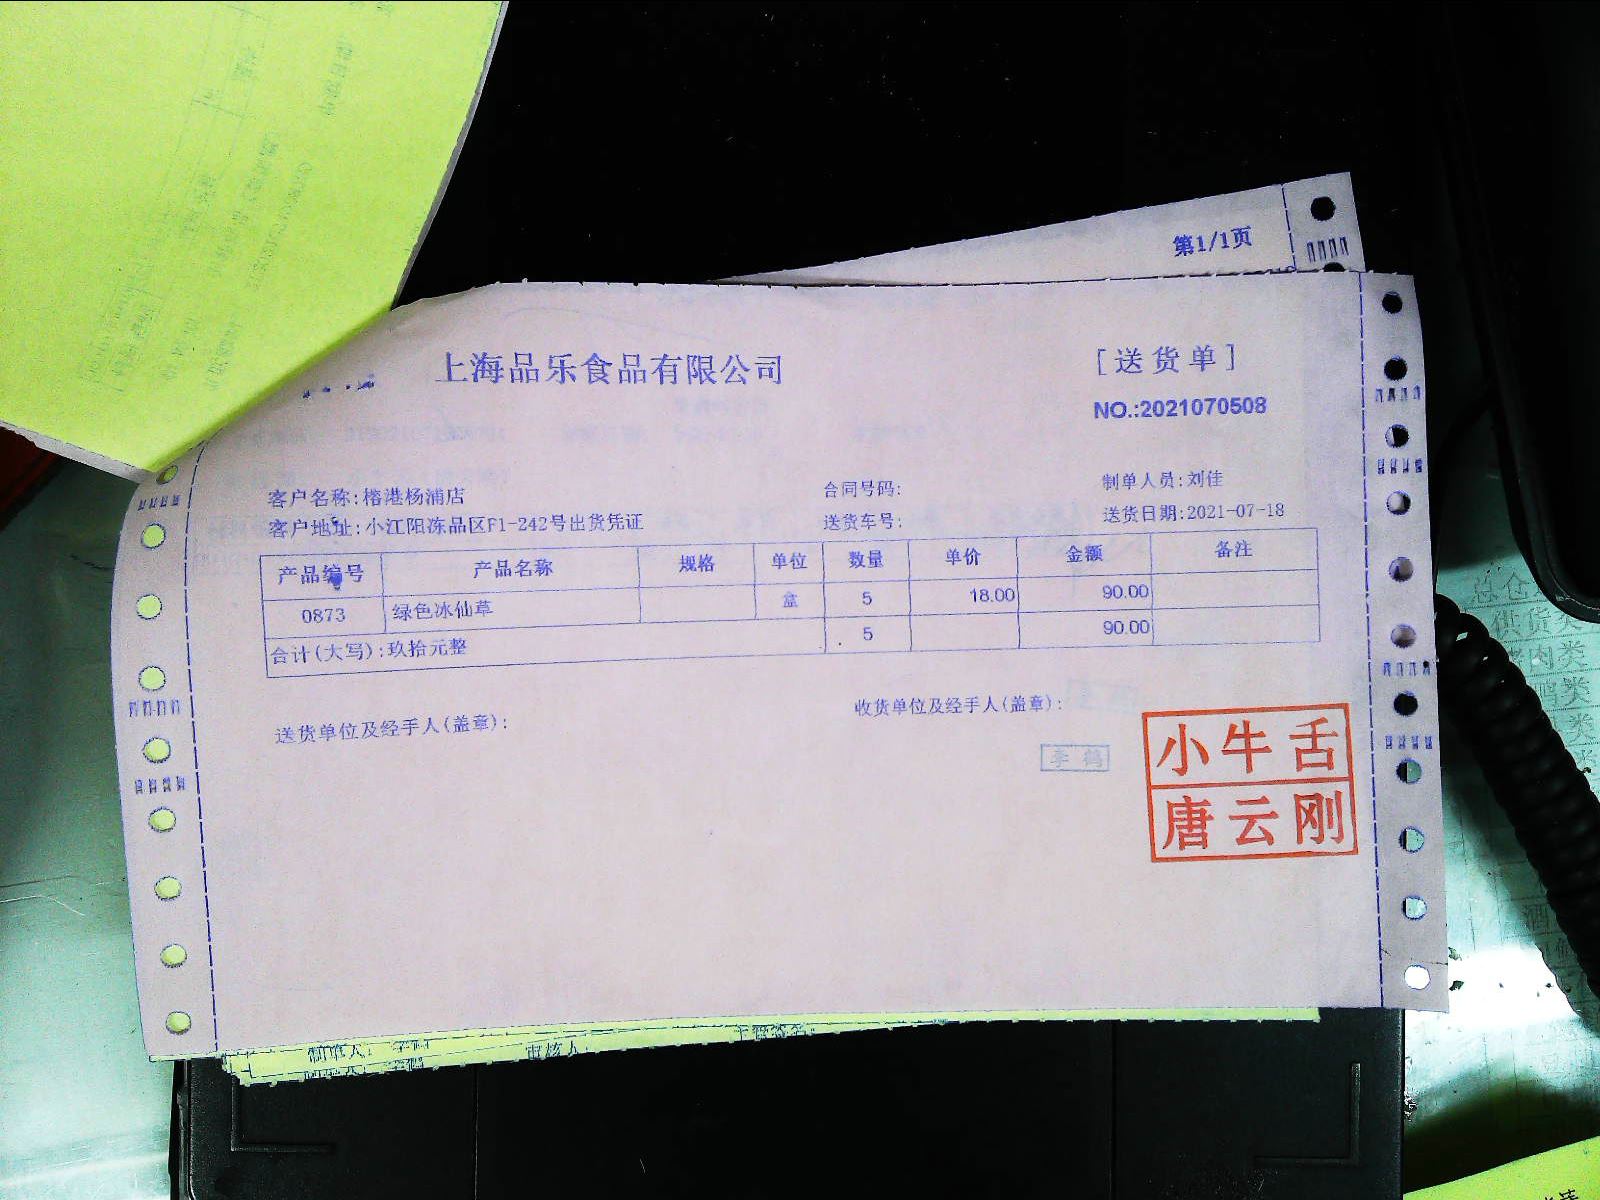 第1/1页
上海品乐食品有限公司
[送货单]
NO.:2021070508
客户名称:榕港杨浦店 合同号码: 制单人员:刘佳
客户地址:小江阳冻品区F1-242号出货凭证 送货车号: 送货日期:2021-07-18
产品编号 产品名称 规格 单位 数量 单价 金额 备注
0873 绿色冰仙草 盒 5 18.00 90.00
合计(大写):玖拾元整 5 90.00
送货单位及经手人(盖章): 收货单位及经手人(盖章):
李鹤
小牛舌
唐云刚
制单人: 李鹤 审核人:
供货类
肉类
鸭类